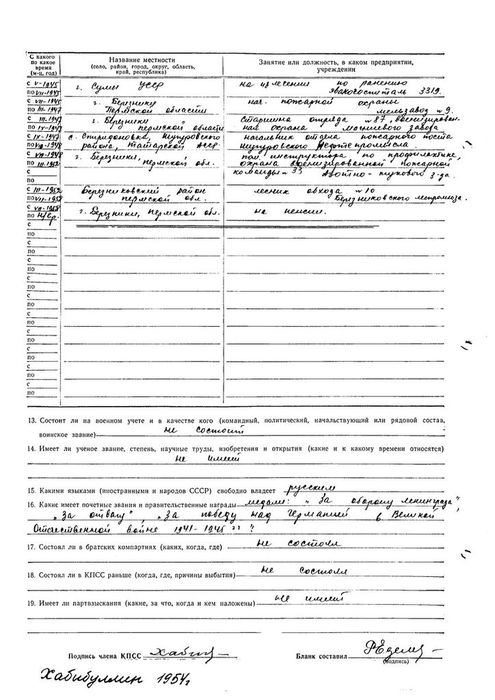 С какого по какое время (м-ц, год)
Название местности
(село, район, город, округ, область, край, республика)
Занятие или должность, в каком предприятии, учреждении
с V-1945
г. Сумы УССР
на излечении по ранению
по VII-1945
эвакогоспиталь 3319.
с VII-1945
г. Березники
нач. пожарной охраны
по III-1947
Пермской области
мельзавод № 9.
с III-1947
г. Березники
старшина отряда № 87 военизиров.
по IV-1947
пермской области
с IV-1947
с. Спиридоновка, Шугуровского
начальник отдел. пожарного поста
района, Татарской АССР.
Шугуровского Нефтепромысла.
г. Березники, пермской обл.
пом. инструктора по профилактике,
охрана военизированной пожарной
команды - 33 Азотно-тукового з-да.
Березниковский район
лесник обхода № 10
пермской обл.
Березниковского
г. Березники, пермской обл.
на пенсии.
по н/вр.
с
по
с
по
с
по
с
по
с
по
с
по
с
по
с
по
с
по
13. Состоит ли на военном учете и в качестве кого (командный, политический, начальствующий или рядовой состав,
воинское звание) не состоит
14. Имеет ли ученое звание, степень, научные труды, изобретения и открытия (какие и к какому времени относятся)
не имеет
15. Какими языками (иностранными и народов СССР) свободно владеет русским
16. Какие имеет почетные звания и правительственные награды медали: „За оборону ленинграда",
„За отвагу", „За победу над Германией в Великой
Отечественной войне 1941-1945 гг"
17. Состоял ли в братских компартиях (каких, когда, где) не состоял
18. Состоял ли в КПСС раньше (когда, где, причины выбытия) не состоял
19. Имеет ли партвзыскания (какие, за что, когда и кем наложены) не имеет
Подпись члена КПСС
Бланк составил
(подпись)
Хабибуллин 1954г